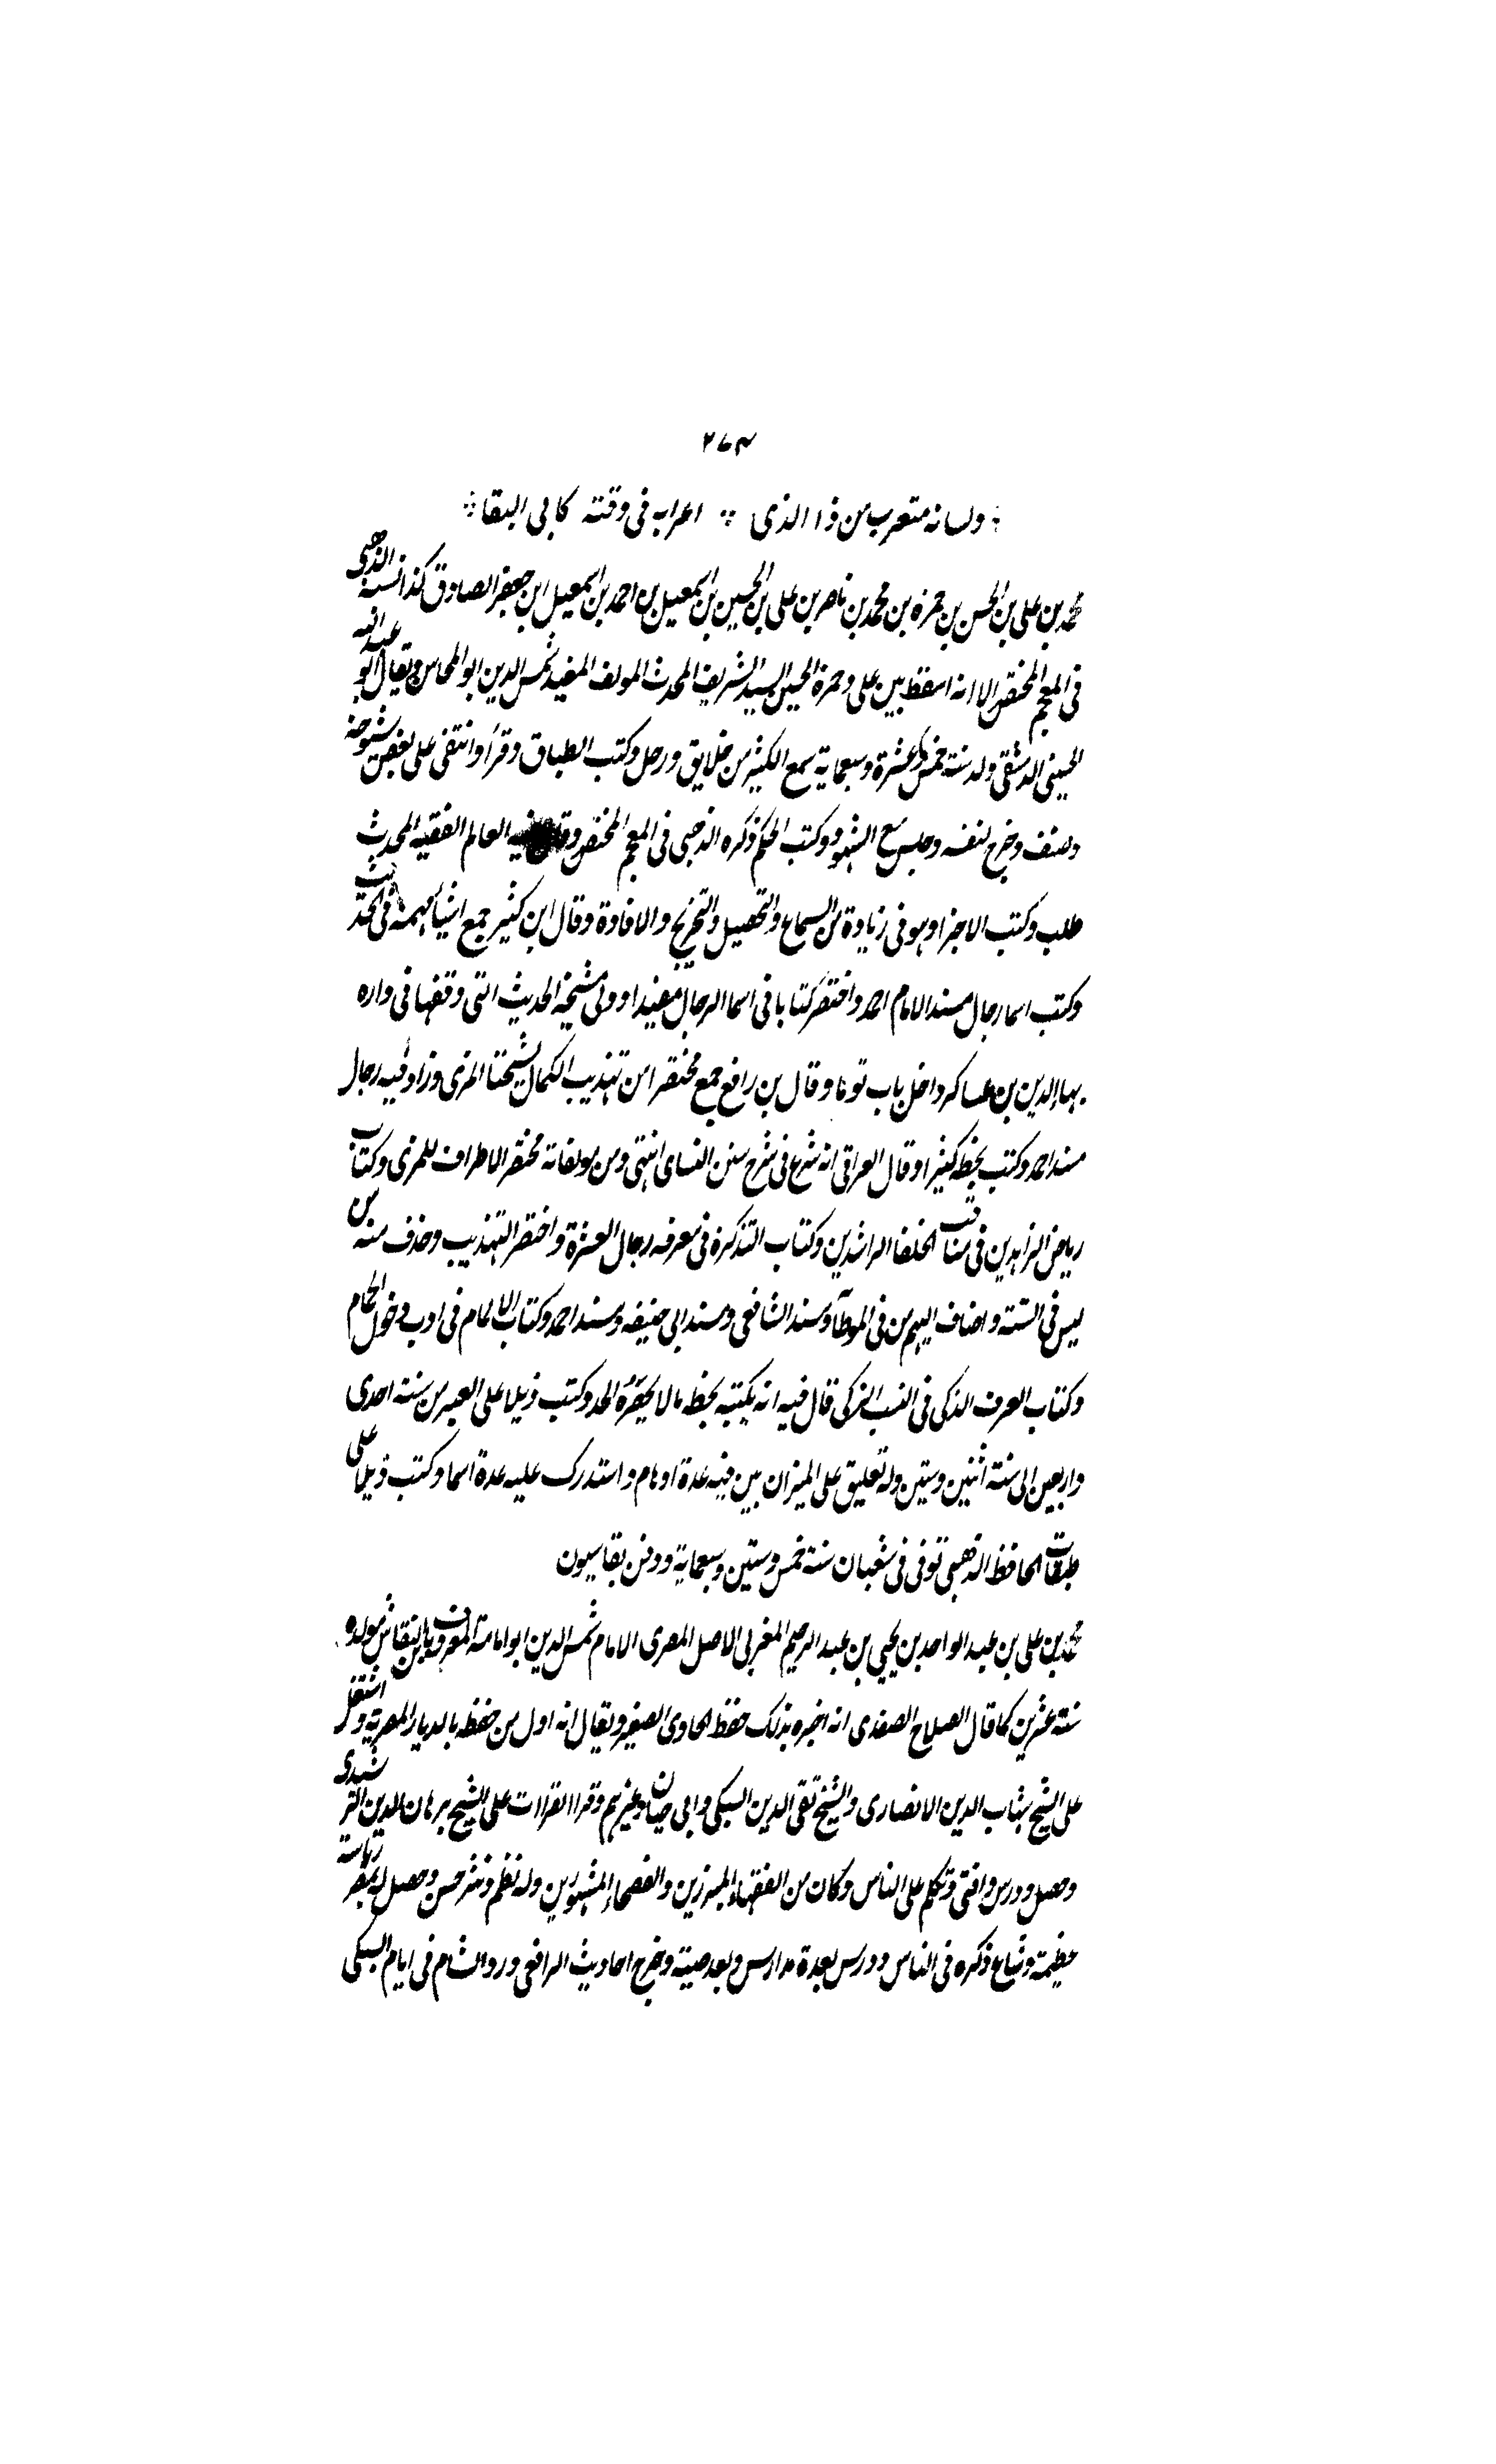 ٢٧٣
ولسانه متعرب من ذا الذى ❊ اعرابه فى وقتته كابى البقا
محمد بن على بن الحسن بن حمزه بن محمد بن ناصر بن على بن الحسين بن اسمعيل بن احمد بن اسمعيل ابن جعفر الصادق كذا نسبه الذهبى
فى المعجم المختص الا انه اسقط بين على وحمزة الحسين السيد الشريف المحدث المولف المفيد شمس الدين ابو المحاسن ويقال ابو عبد الله
الحسينى الدمشقى ولد سنة خمس عشرة وسبعماية سمع الكثير من خلايق ورحل وكتب الطباق وقرأ وانتقى على بعض شيوخه
وصنف وخرج لنفسه وجلس مع الشهود وكتب الحكم ذكره الذهبى فى المعجم المختص وقال فيه العالم الفقيه المحدث
طلب وكتب الاجزا وهو فى زيادة من السماع والتحصيل والتخريج والافادة وقال ابن كثير جمع اشيأ مهمه فى الحديث
وكتب اسما رجال مسند الامام احمد واختصر كتابا فى اسما الرجال مفيدا وولى مشيخة الحديث التى وقفها فى داره
بهاء الدين بن عساكر داخل باب توما وقال بن رافع جمع مختصرا من تهذيب الكمال لشيخنا المزى وزاد فيه رجال
مسند احمد وكتب بخطه كثيرا وقال العراقى انه شرع فى شرح سنن النساى انتهى ومن مولفاته مختصر الاطراف للمزى وكتاب
رياض الزاهدين فى مناقب الخلفا الراشدين وكتاب التذكرة فى معرفه رجال العشرة واختصر التهذيب وحذف منه من
ليس فى الستة واضاف اليهم من فى الموطآ ومسند الشافعى ومسند ابى حنيفه ومسند احمد وكتاب الالمام فى ادب دخول الحمام
وكتاب العرف الذكى فى النسب الزكى قال فيه انه يكتبه بخطه مالا يحقره احد وكتب ذيلا على العبر من سنة احدى
واربعين الى سنة اثنين وستين وله تعليق على الميزان بين فيه عدة اوهام واستدرك عليه عدة اسما وكتب ذيلا على
طبقات الحافظ الذهبى توفى فى شعبان سنة خمس وستين وسبعماية ودفن بقاسيون
محمد بن على بن عبد الواحد بن يحيى بن عبد الرحيم المغربى الاصل المصرى الامام شمس الدين ابو امامة المعروف بابن النقاش مولده
سنة عشرين كما قال الصلاح الصفدى انه اخبره بذلك حفظ الحاوى الصغير ويقال انه اول من حفظه بالديار المصرية واشتغل
على الشيخ شهاب الدين الانصارى والشيخ تقى الدين السبكى وابى حيان وغيرهم وقرا القراات على الشيخ برهان الدين الرشيدى
وحصل ودرس وافتى وتكلم على الناس وكان من الفقهاء المبرزين والفصحاء المشهورين وله نظم ونثر حسن وحصل له بمصر رياسة
عظيمة وشاع ذكره فى الناس ودرس بعدة مدارس وبعد صيته وخرج احاديث الرافعى وورد الشام فى ايام السبكى